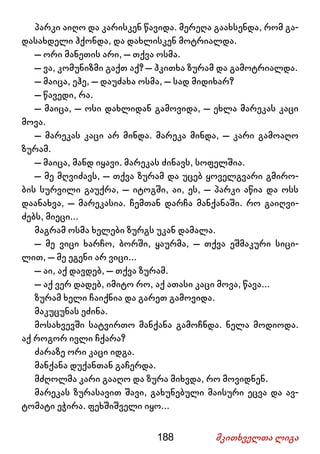 პარკი აიღო და კარისკენ წავიდა. მერეღა გაახსენდა, რომ გა-
დასახდელი ჰქონდა, და დახლისკენ მოტრიალდა.
— ორი მანეთის არი, — თქვა ოსმა.
— ვა, კომუნიზმი გაქთ აქ? — ჰკითხა ზურამ და გამოტრიალდა.
— მაიცა, ეჰე, — დაუძახა ოსმა, — სად მიდიხარ?
— წავედი, რა.
— მაიცა, — ოსი დახლიდან გამოვიდა, — ეხლა მარეკას კაცი
მოვა.
— მარეკას კაცი არ მინდა. მარეკა მინდა, — კარი გამოაღო
ზურამ.
— მაიცა, მანდ იყავი. მარეკას ძინავს, სოფელშია.
— მე მღვიძავს, — თქვა ზურამ და უცებ ყოველგვარი გმირო-
ბის სურვილი გაუქრა, — იტოგში, აი, ეს, — პარკი აწია და ოსს
დაანახვა, — მარეკასია. ჩემთან დარჩა მანქანაში. რო გაიღვი-
ძებს, მიეცი...
მაგრამ ოსმა ხელები ზურგს უკან დამალა.
— მე ვიცი ხარჩო, ბორში, ყაურმა, — თქვა ეშმაკური სიცი-
ლით, — მე ეგენი არ ვიცი...
— აი, აქ დავდებ, — თქვა ზურამ.
— აქ ვერ დადებ, იმიტო რო, აქ ათასი კაცი მოვა, წავა...
ზურამ ხელი ჩაიქნია და გარეთ გამოვიდა.
მაკუცუნას ეძინა.
მოსახვევში სატვირთო მანქანა გამოჩნდა. ნელა მოდიოდა.
აქ როგორ ივლი ჩქარა?
ძარაზე ორი კაცი იდგა.
მანქანა დუქანთან გაჩერდა.
მძღოლმა კარი გააღო და ზურა მიხვდა, რო მოვიდნენ.
მარეკას ზურასავით შავი, გახუნებული მაისური ეცვა და ავ-
ტომატი ეჭირა. ფეხშიშველი იყო...
188 მკითხველთა ლიგა